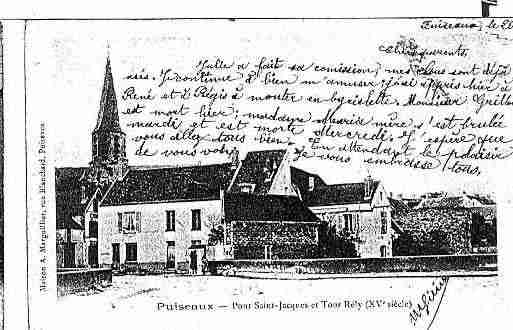 Puiseaux, le 2
Chers parents,
Julie a fait sa comission, mes clous sont déjà
usés. Je continue à bien m'amuser j'ai appris hier à
René et à Régis à monter en bycislette. Monsieur
est mort hier; madame Maurice mère s'est brulée
mardi et est morte Mercredi. J'espère que
vous allez tous bien. En attendant le plaisir
de vous voir
Je vous embrasse tous.
Maison A. Marguillier, rue Blanchard, Puiseaux
Puiseaux — Pont Saint-Jacques et Tour Rély (XVe siècle)